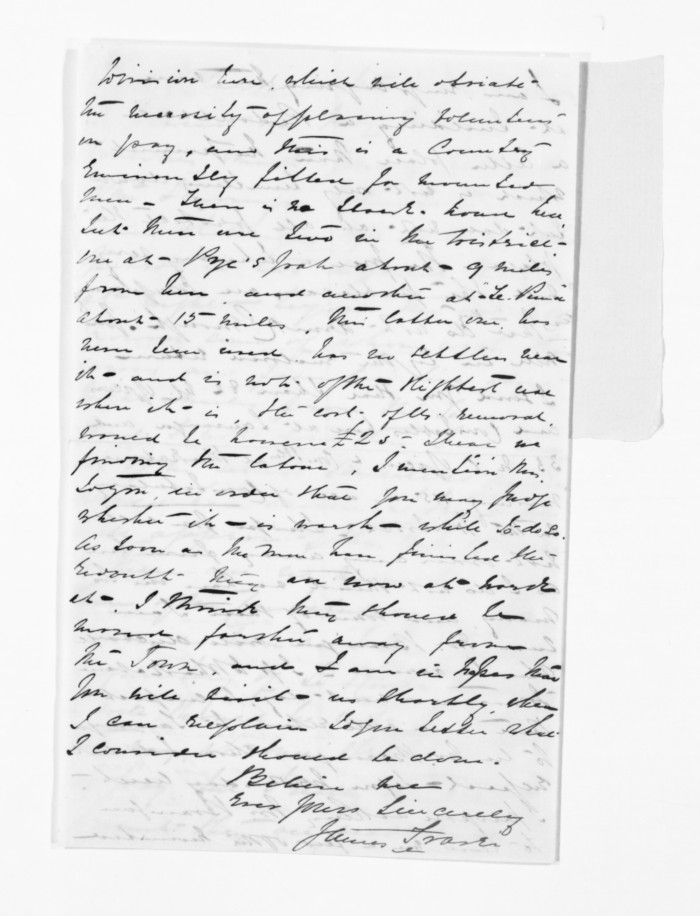 Division here, which will obviate
the necessity of placing Volunteers
on pay, and this is a Country
Eminently fitted for mounted
men - There is no Block-house here
but there are two in the District -
one at Pye's pah about 9 miles
from here and another at Te Puna
about 15 miles, this latter one has
never been used has no settlers near
it - and is not of the slightest use
where it is, the cost of its removal
would be however £25 - these we
finding the labour, I mention this
to you, in order that you may judge
whether it is worth while to do so.
As soon as the men have finished the
Redoubt they are now at work
at, I think they should be
moved farther away from
the Town, and I am in hopes that
you will visit us shortly, when
I can explain to you better what
I consider should be done.
Believe me
Ever yours Sincerely
James Fraser